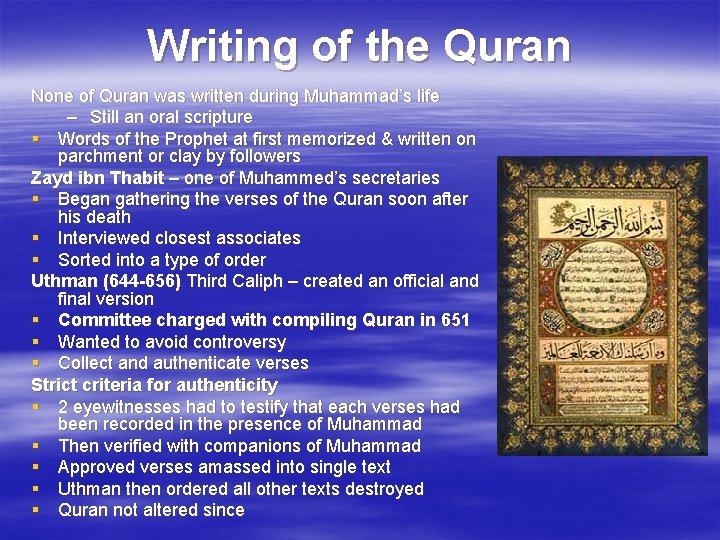 Writing of the Quran
None of Quran was written during Muhammad’s life
– Still an oral scripture
▪ Words of the Prophet at first memorized & written on
parchment or clay by followers
Zayd ibn Thabit – one of Muhammed’s secretaries
▪ Began gathering the verses of the Quran soon after
his death
▪ Interviewed closest associates
▪ Sorted into a type of order
Uthman (644-656) Third Caliph – created an official and
final version
▪ Committee charged with compiling Quran in 651
▪ Wanted to avoid controversy
▪ Collect and authenticate verses
Strict criteria for authenticity
▪ 2 eyewitnesses had to testify that each verses had
been recorded in the presence of Muhammad
▪ Then verified with companions of Muhammad
▪ Approved verses amassed into single text
▪ Uthman then ordered all other texts destroyed
▪ Quran not altered since
بسم الله الرحمن الرحيم
وما أرسلناك إلا رحمة للعالمين